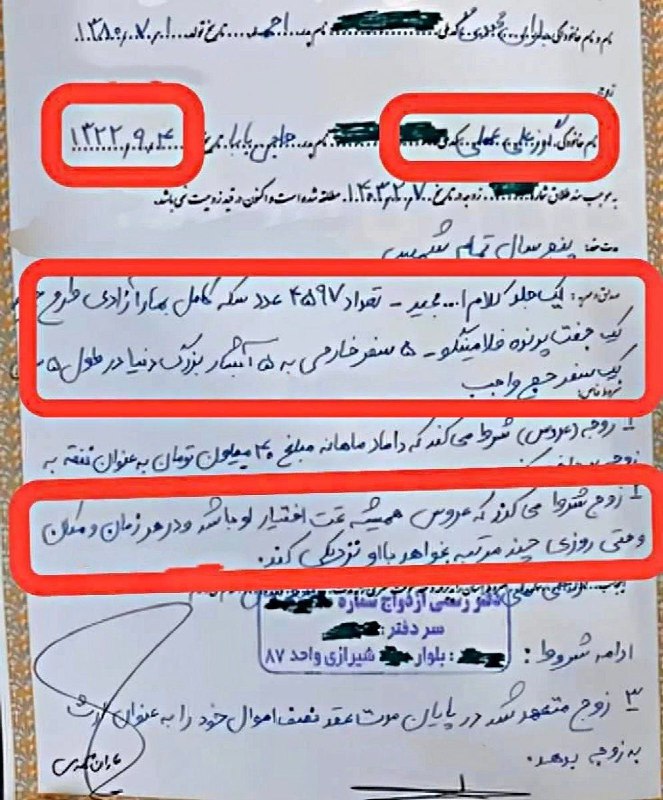 نام و نام خانوادگی: باران محمدی کد ملی نام پدر: احمد تاریخ تولد ۱۳۸۰,۷,۱
زوج
نام خانوادگی: گودرز علی عملی کد ملی نام پدر: حاجی بابا تاریخ ۱۳۲۲,۹,۴
به موجب سند طلاق شماره زوجه در تاریخ ۱۴۰۳,۲,۷ مطلقه شده است و اکنون در قید زوجیت نمی‌باشد.
مدت عقد: پنج سال تمام شمسی
صداق و مهریه: یک جلد کلام ا... مجید - تعداد ۴۵۹۷ عدد سکه کامل بهار آزادی طرح
یک جفت پرنده فلامینگو - ۵ سفر خارجی به ۵ آبشار بزرگ دنیا در طول ۵
یک سفر حج واجب
شروط خاص:
۱ زوجه (عروس) شرط می کند که داماد ماهانه مبلغ ۴۰ میلیون تومان به عنوان نفقه به
زوجه
۲ زوج شرط می کند که عروس همیشه تحت اختیار او باشد و در هر زمان و مکان
و حتی روزی چند مرتبه بخواهد با او نزدیکی کند.
دفتر رسمی ازدواج شماره
سر دفتر:
بلوار شیرازی واحد ۸۷
ادامه شروط:
۳ زوج متعهد شد در پایان مدت عقد نصف اموال خود را به عنوان ارث
به زوجه بدهد.
باران محمدی